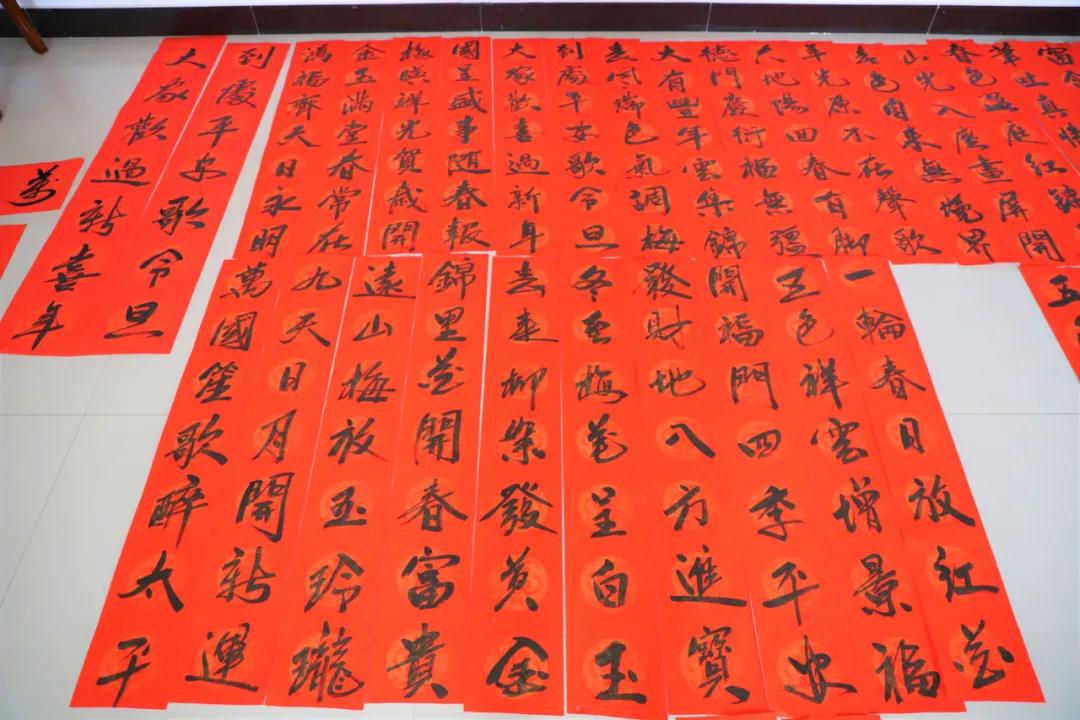 春色盈庭紅
山光入座畫屏開
春色自来無境界
年光原不在聲歌
大地陽回春有脚
德門慶衍福無疆
大有豐年雲集錦
春風瑞色氣調梅
到處平安歌令旦
大家歡喜過新年
國呈盛事随春報
梅映祥光賀歲開
金玉滿堂春常在
鴻福齊天日永明
到處平安歌令旦
大家歡過新喜年
萬
五
一輪春日放紅花
五色祥雲增景福
開福門四季平安
發財地八方進寶
冬至梅花呈白玉
春来柳葉發黄金
錦里花開春富貴
遠山梅放玉玲瓏
九天日月開新運
萬國笙歌醉太平